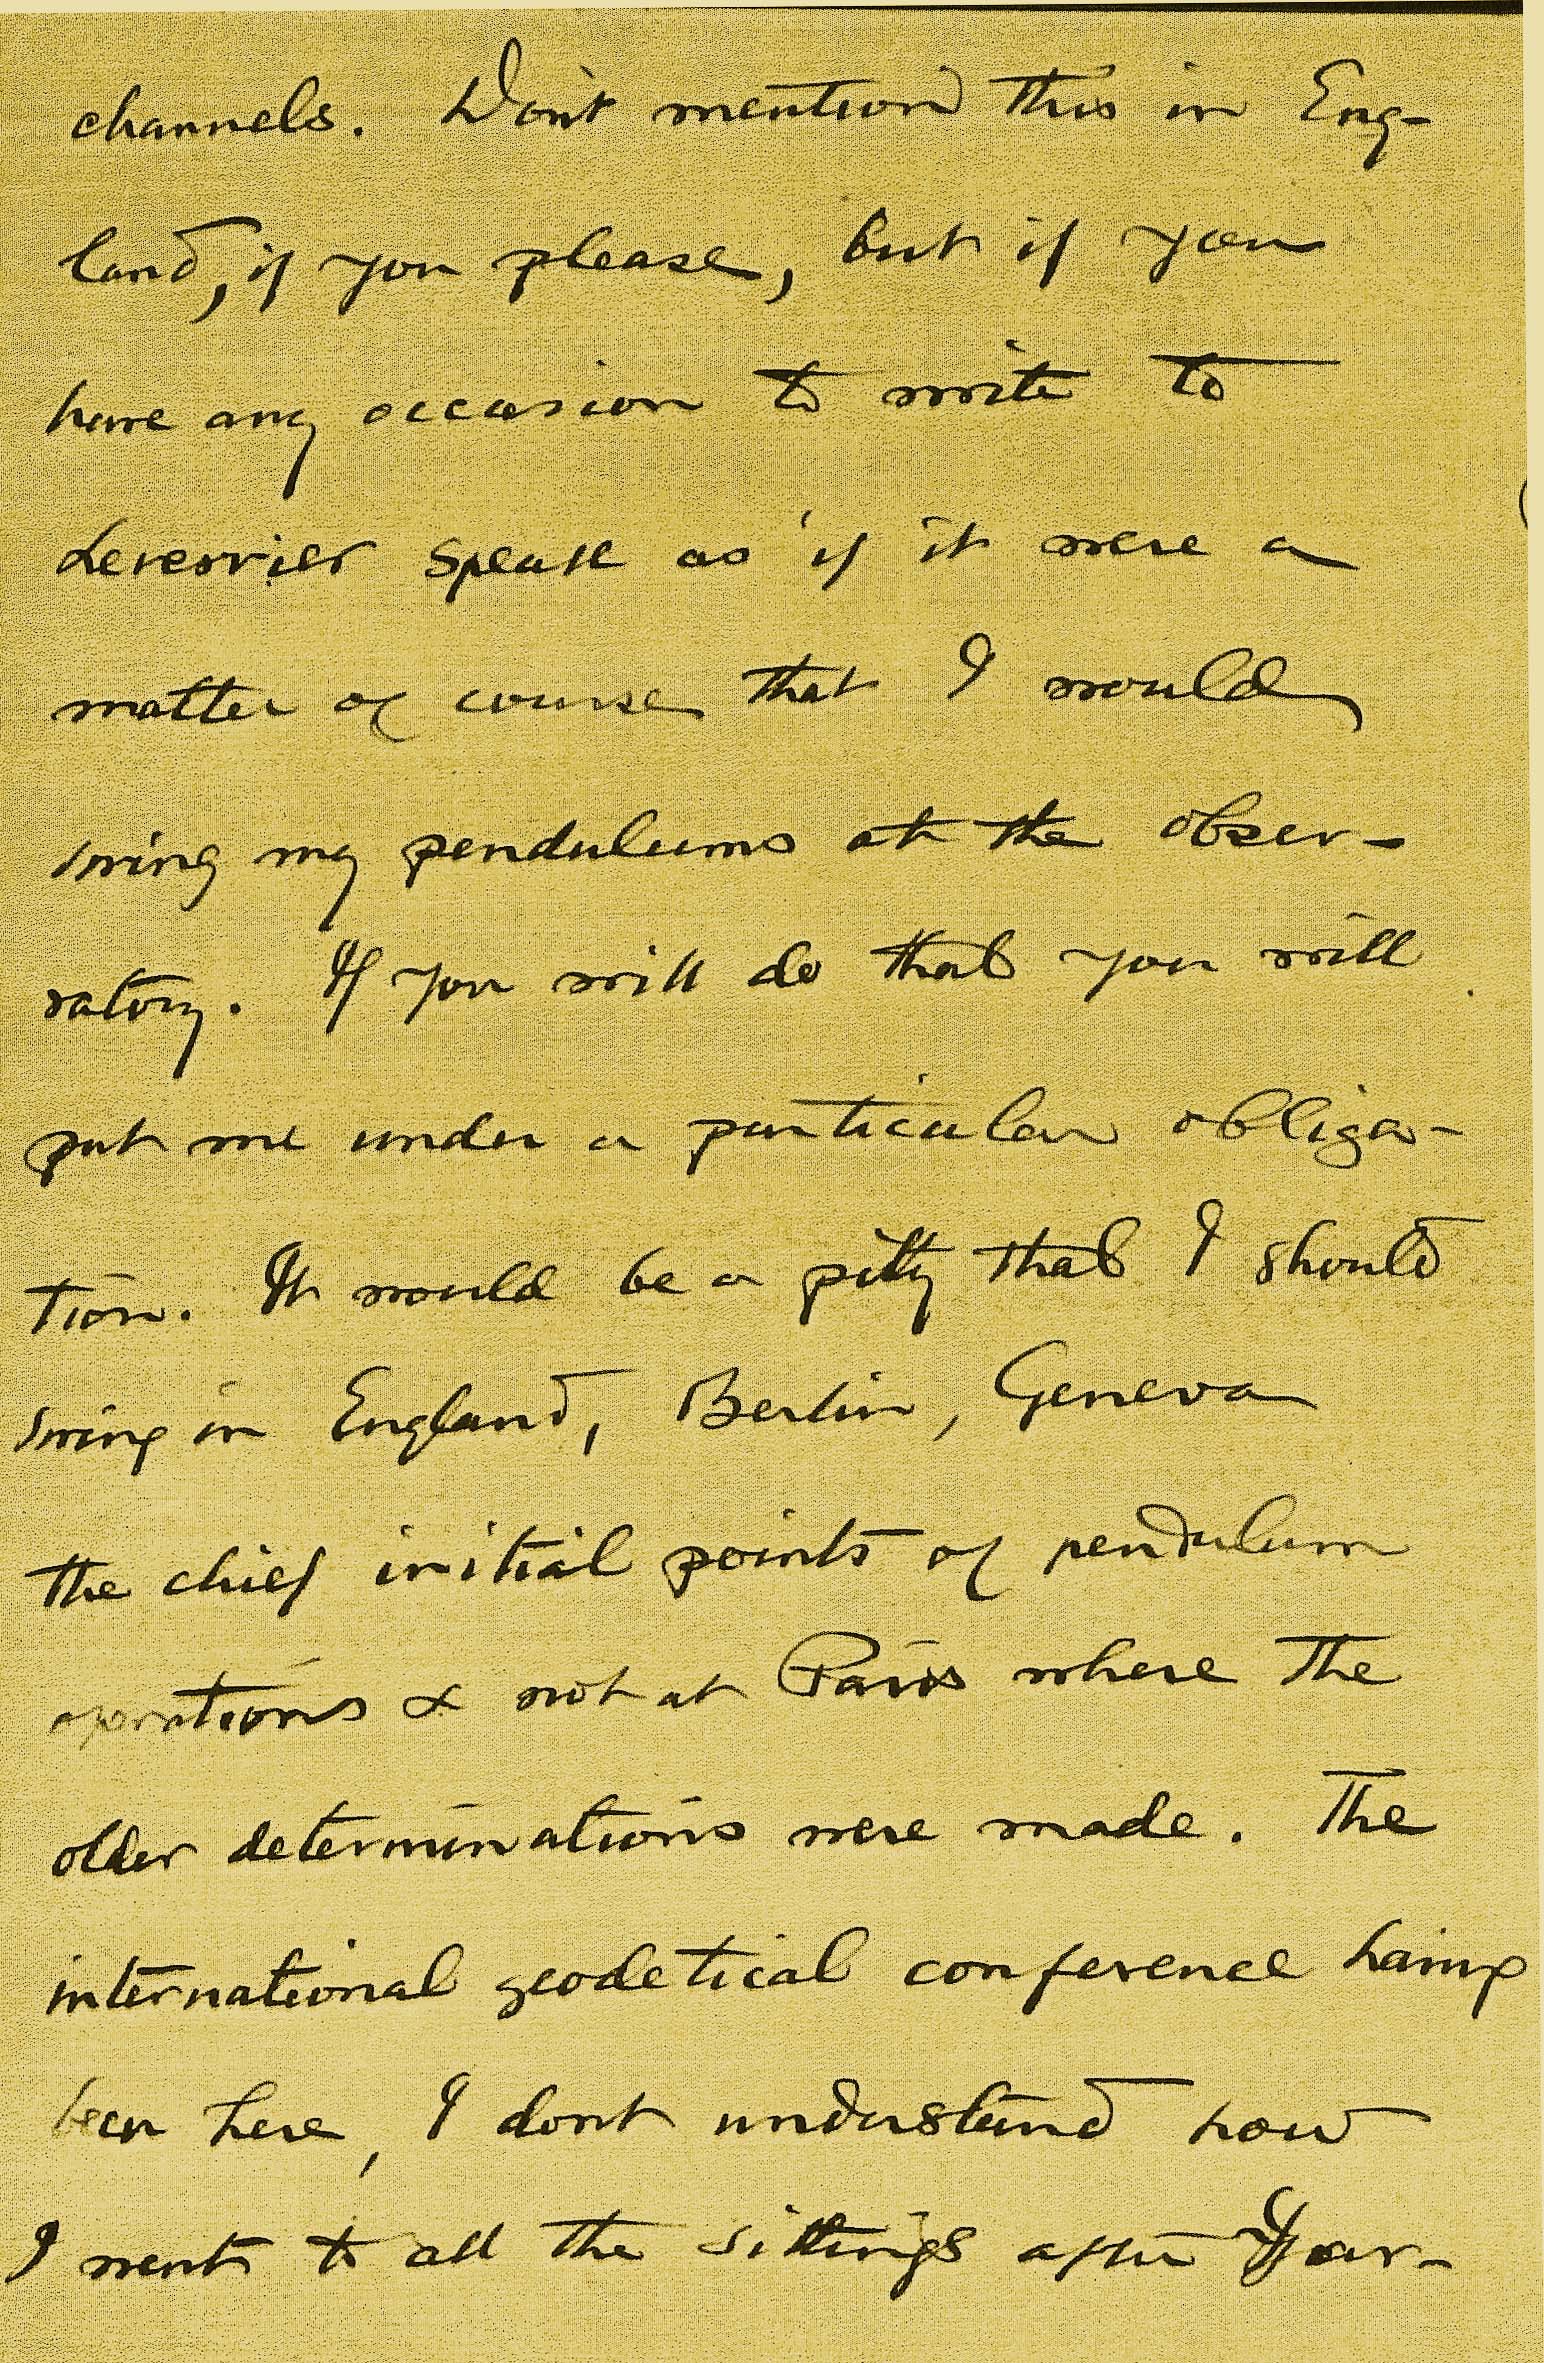 channels. Don't mention this in Eng-
land, if you please, but if you
have any occasion to write to
Leverrier speak as if it were a
matter of course that I would
swing my pendulums at the obser-
vatory. If you will do that you will
put me under a particular obliga-
tion. It would be a pitty that I should
swing in England, Berlin, Geneva
the chief initial points of pendulum
operations & not at Paris where the
older determinations were made. The
international geodetical conference having
been here, I dont understand how
I went to all the sittings after